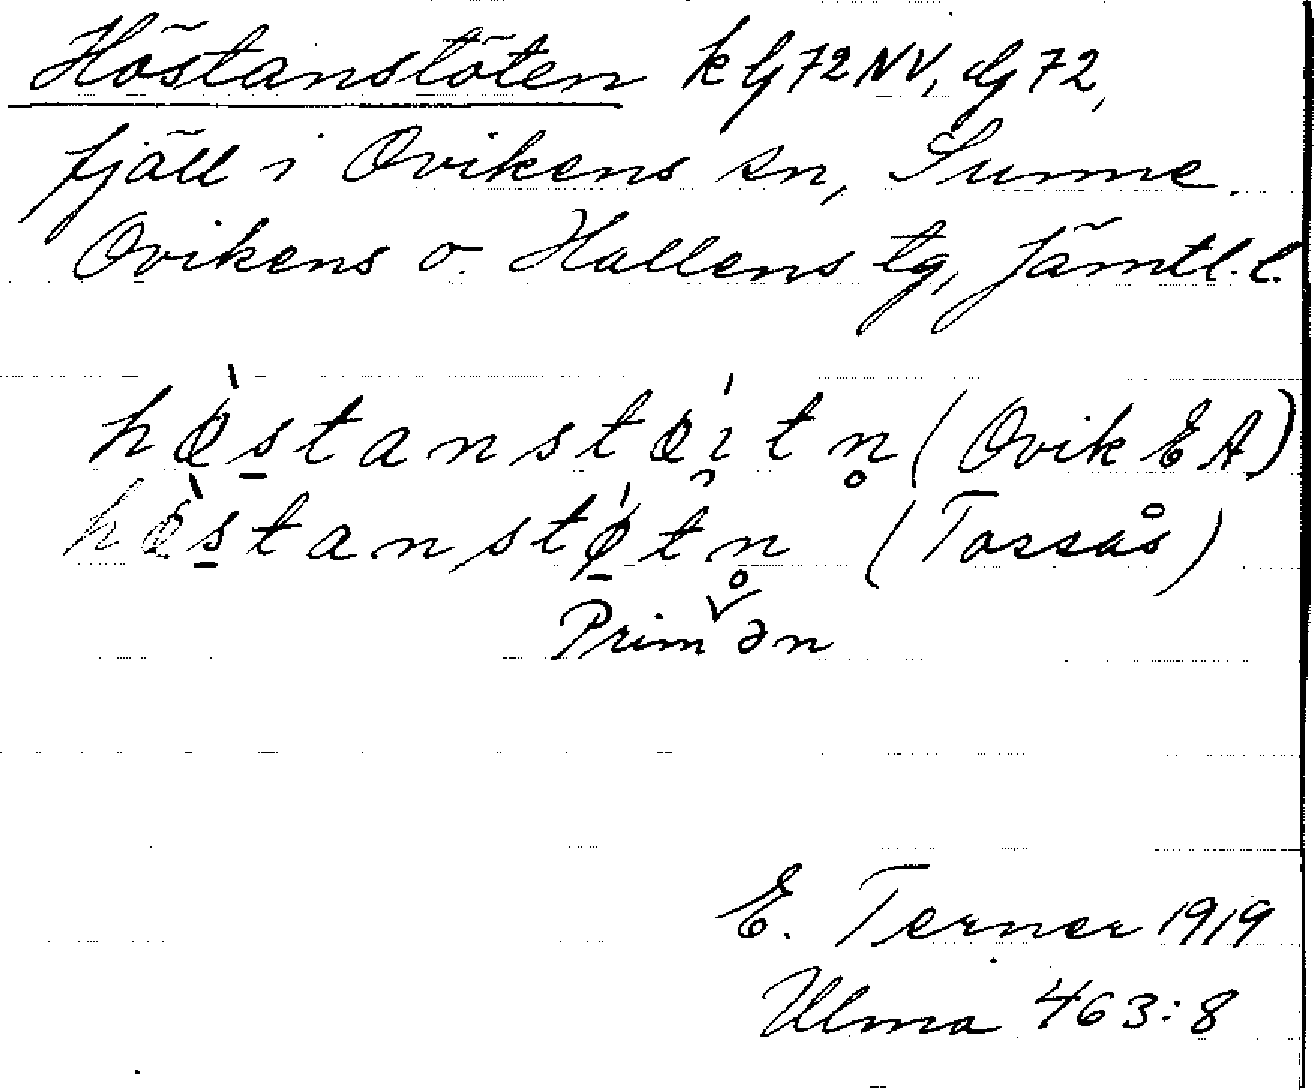 Höstanstöten k Lj 72 NV, dLj 72,
fjäll i Ovikens sn, Sunne.
Ovikens o. Hallens tg, Jämtl. l.
hø̀s̠tanstǿi̯tn̥ (Ovik E A)
hø̀s̠tanstǿ̠tn̥ (Tossås)
Prim ən
E. Terner 1919
Ulma 463:8